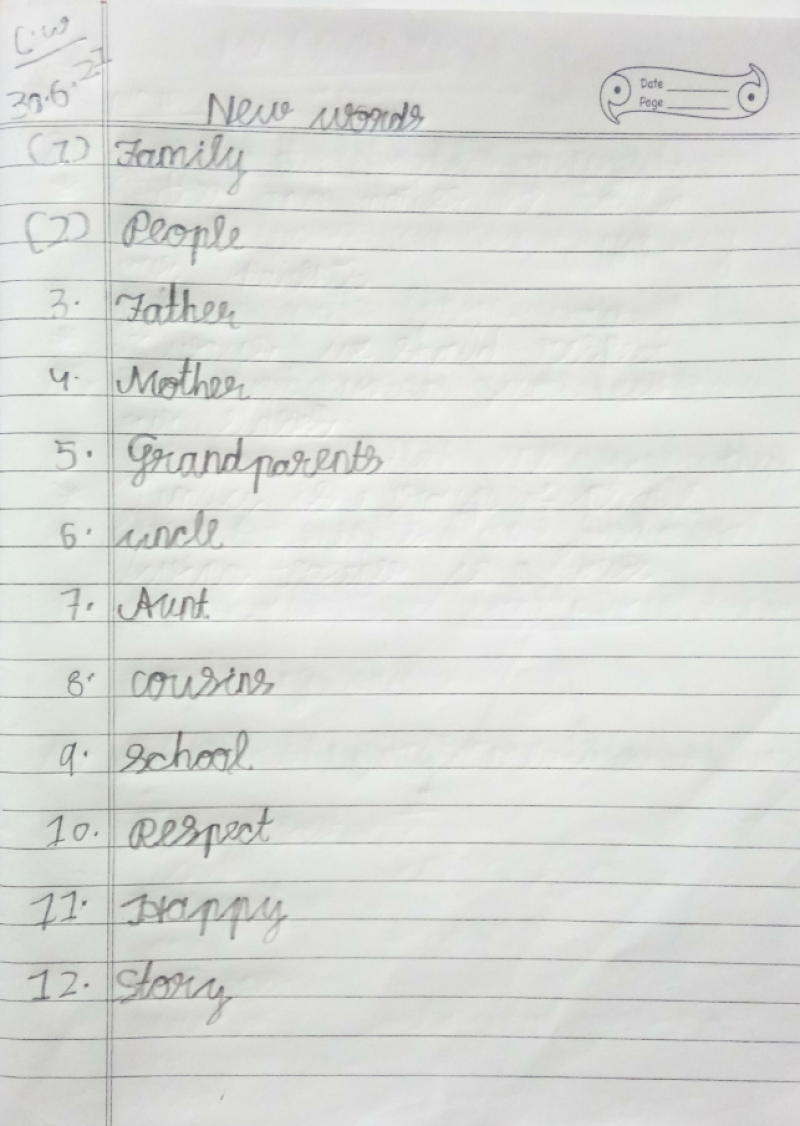 C.W
30.6.21
New words
Date
Page
(1) Family
(2) People
3. Father
4. Mother
5. Grandparents
6. uncle
7. Aunt
8. cousins
9. school
10. Respect
11. Happy
12. Story